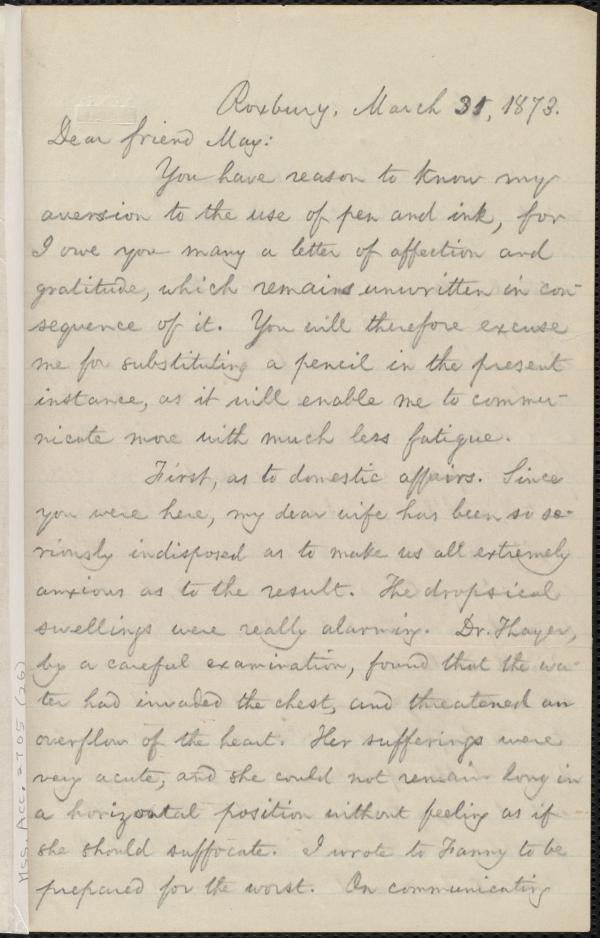 Roxbury, March 31, 1873.
Dear friend May:
You have reason to know my
aversion to the use of pen and ink, for
I owe you many a letter of affection and
gratitude, which remains unwritten in con-
sequence of it. You will therefore excuse
me for substituting a pencil in the present
instance, as it will enable me to commu-
nicate more with much less fatigue.
First, as to domestic affairs. Since
you were here, my dear wife has been so se-
riously indisposed as to make us all extremely
anxious as to the result. The dropsical
swellings were really alarming. Dr. Thayer,
by a careful examination, found that the wa-
ter had invaded the chest, and threatened an
overflow of the heart. Her sufferings were
very acute, and she could not remain long in
a horizontal position without feeling as if
she should suffocate. I wrote to Fanny to be
prepared for the worst. On communicating
Mss. Acc. 2705 (26)